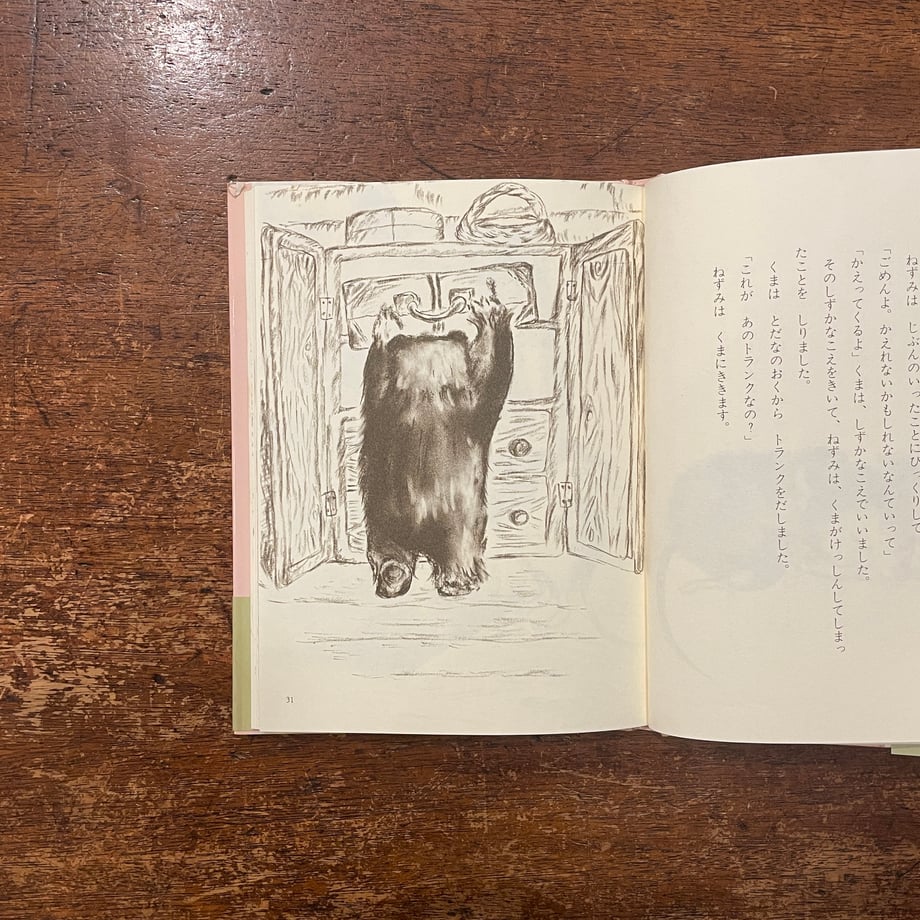 ねずみは じぶんのいったことにびっくりして
「ごめんよ。かえれないかもしれないなんていって」
「かえってくるよ」くまは、しずかなこえでいいました。
そのしずかなこえをきいて、ねずみは、くまがけっしんしてしまっ
たことを しりました。
くまは とだなのおくから トランクをだしました。
「これが あのトランクなの？」
ねずみは くまにききます。
31